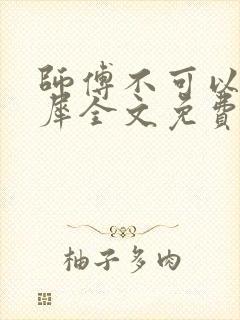 師傅不可以
犀全文免費
柚子多肉